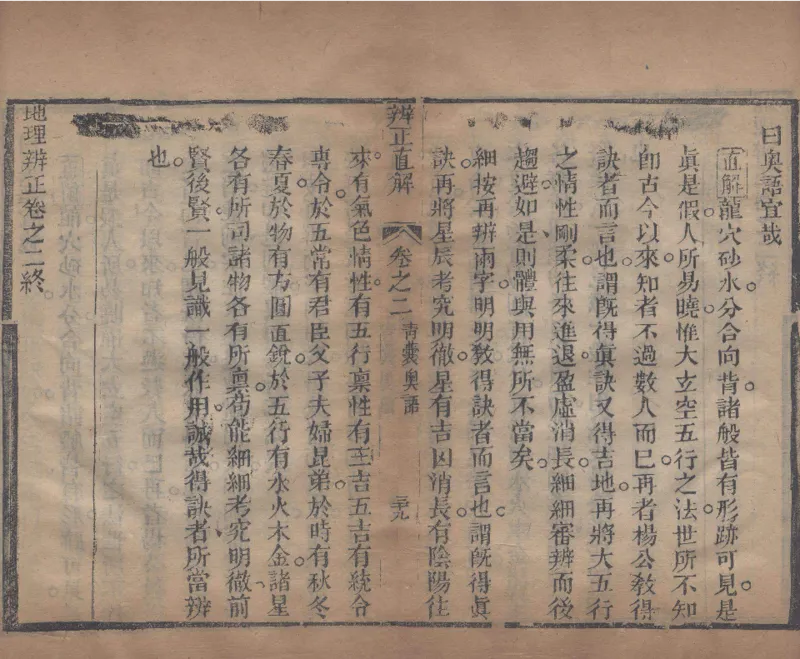 曰奧語宜哉
直解龍穴砂水分合向背諸般皆有形跡可見是
眞是假人所易曉惟大玄空五行之法世所不知
卽古今以來知者不過數人而已再者楊公敎得
訣者而言也。謂旣得眞訣又得吉地。再將大五行
之情性剛柔往來進退盈虛消長。細細審辨而後
趨避如是則體與用無所不當矣。
細按再辨兩字明明敎得訣者而言也。謂旣得眞
訣。再將星辰考究明徹星有吉凶消長。有陰陽往
辨正直解 卷之二 靑囊奧語
來。有氣色情性有五行稟性有三吉五吉有統令
專令於五常有君臣父子夫婦昆弟。於時有秋冬
春夏。於物有方圓直銳。於五行有水火木金。諸星
各有所司諸物各有所稟。苟能細細考究明徹前
賢後賢一般見識一般作用。誠哉得訣者所當辨
也。
地理辨正卷之二終